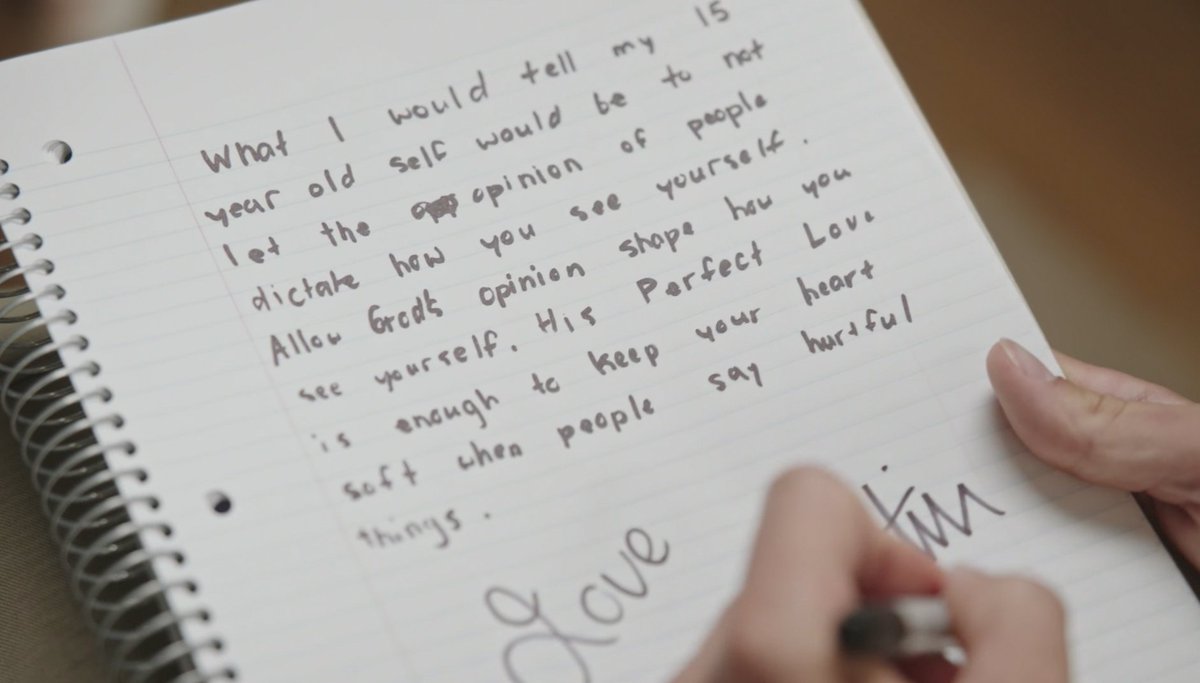 What I would tell my 15
year old self would be to not
let the opinion of people
dictate how you see yourself.
Allow God's opinion shape how you
see yourself. His Perfect Love
is enough to keep your heart
soft when people say hurtful
things.
Love